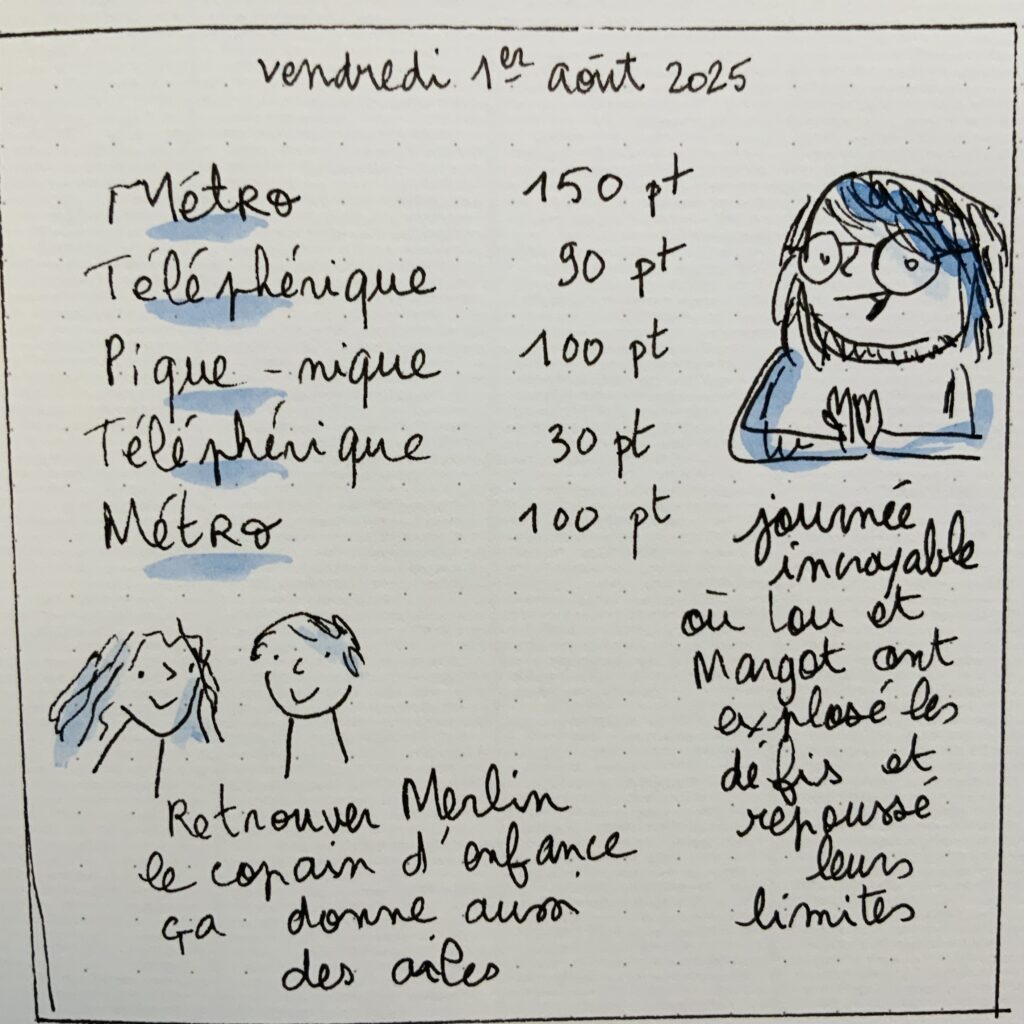 vendredi 1er août 2025
Métro 150 pt
Téléphérique 90 pt
Pique-nique 100 pt
Téléphérique 30 pt
Métro 100 pt
journée
incroyable
où Lou et
Margot ont
explosé les
défis et
repoussé
leurs
limites
Retrouver Merlin
le copain d'enfance
ça donne aussi
des ailes